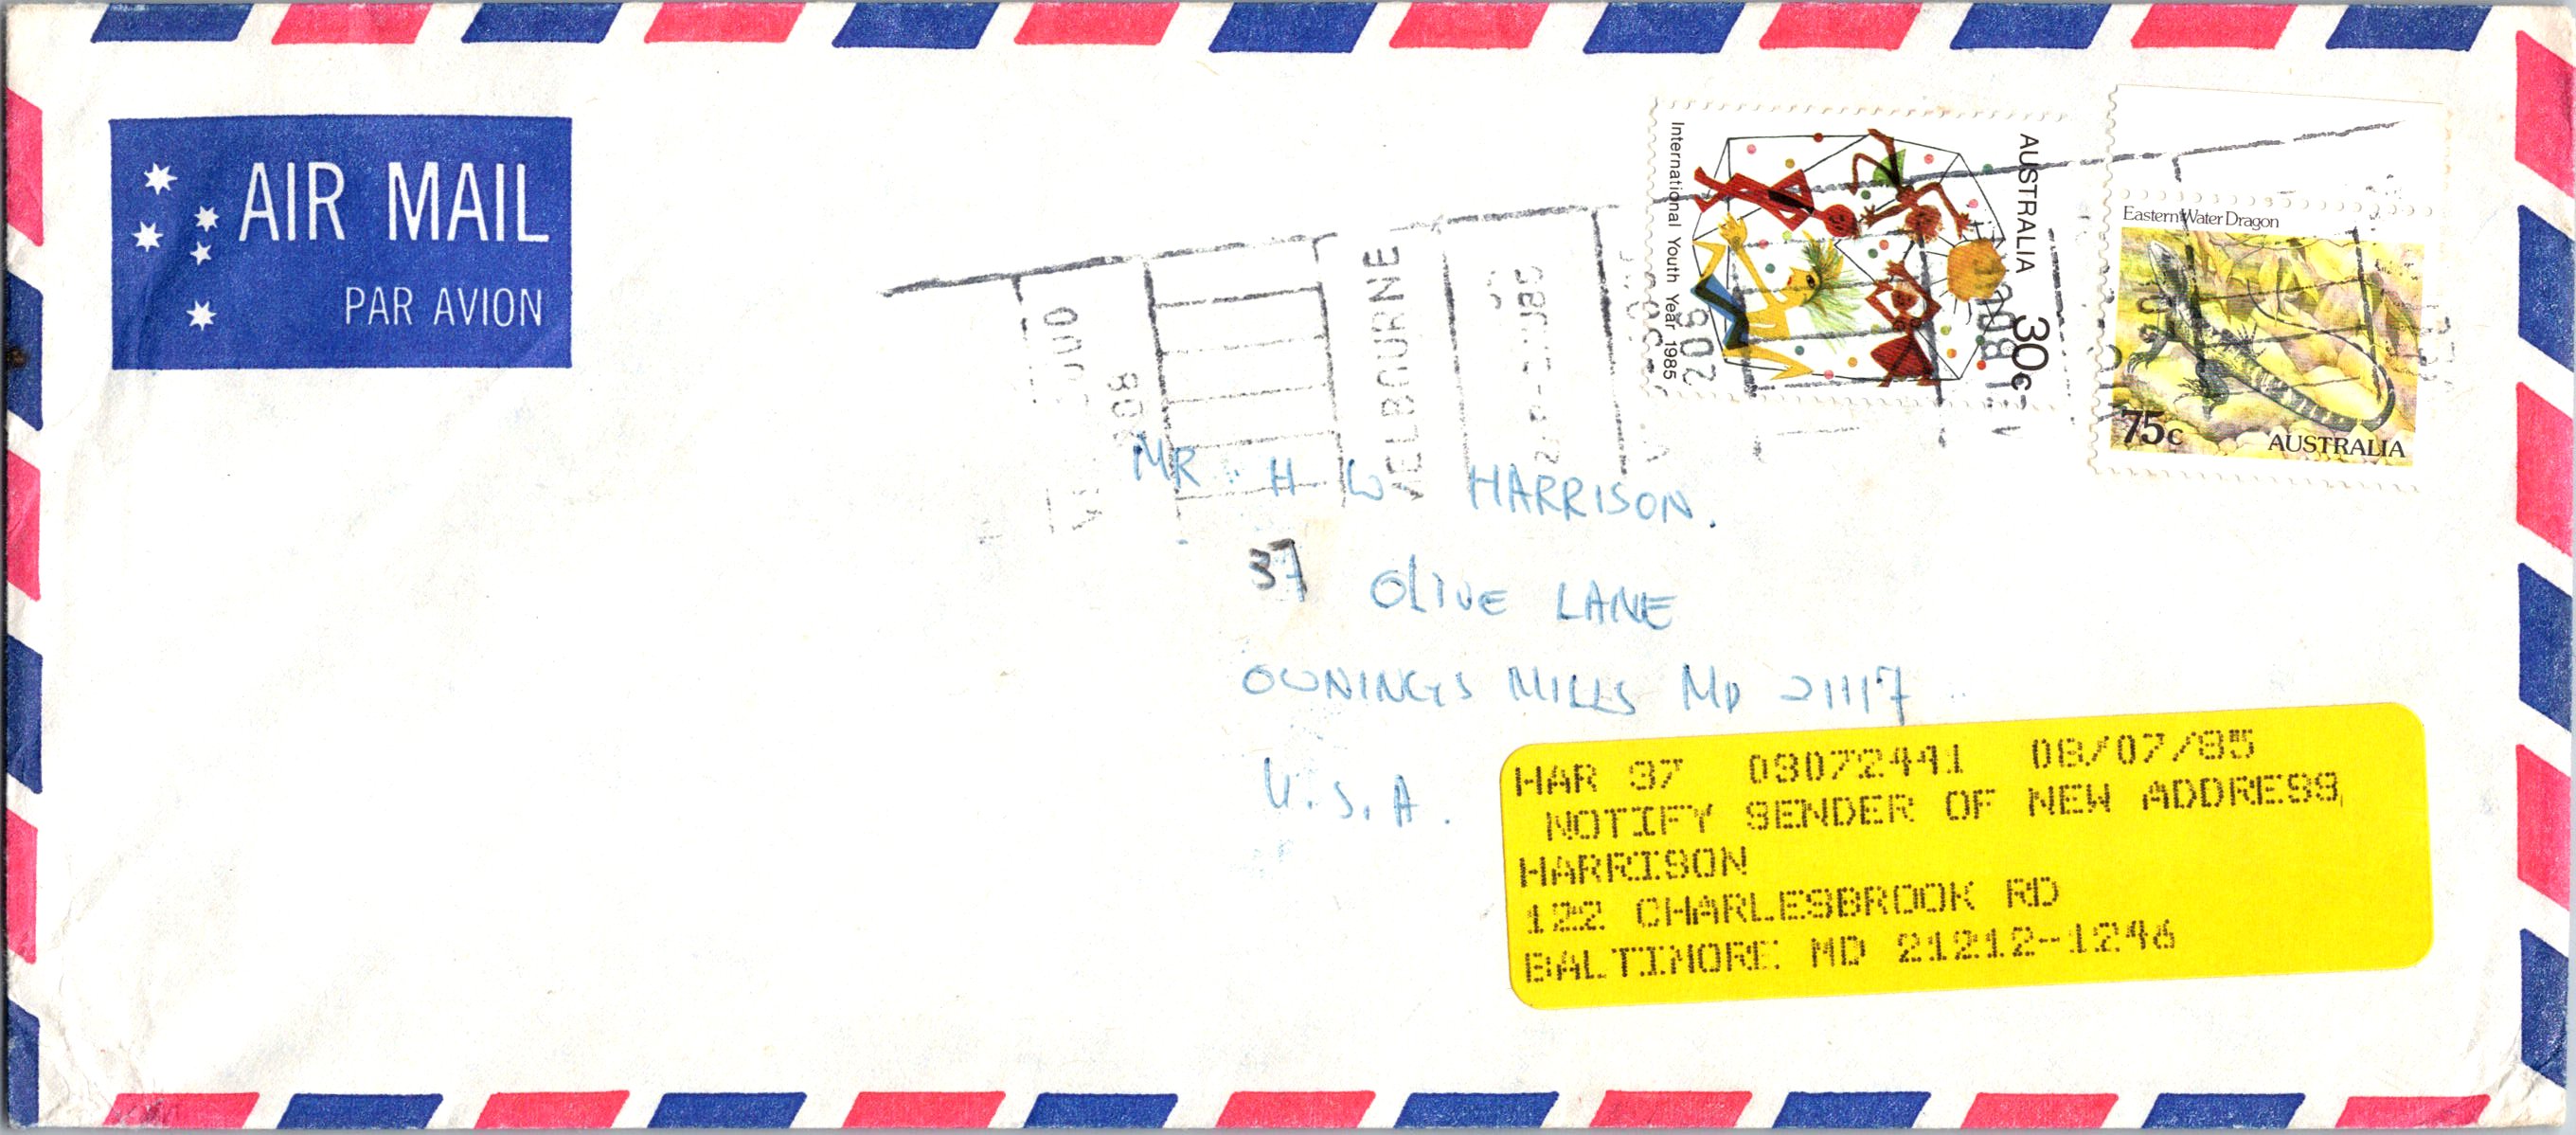 AIR MAIL
PAR AVION
International Youth Year 1985
AUSTRALIA 30c
Eastern Water Dragon
75c
AUSTRALIA
MELBOURNE
MR. H. W HARRISON.
37 OLIVE LANE
OWNINGS MILLS MD 21117
U.S.A.
HAR 37 03072441 08/07/85
NOTIFY SENDER OF NEW ADDRESS
HARRISON
122 CHARLESBROOK RD
BALTIMORE MD 21212-1246